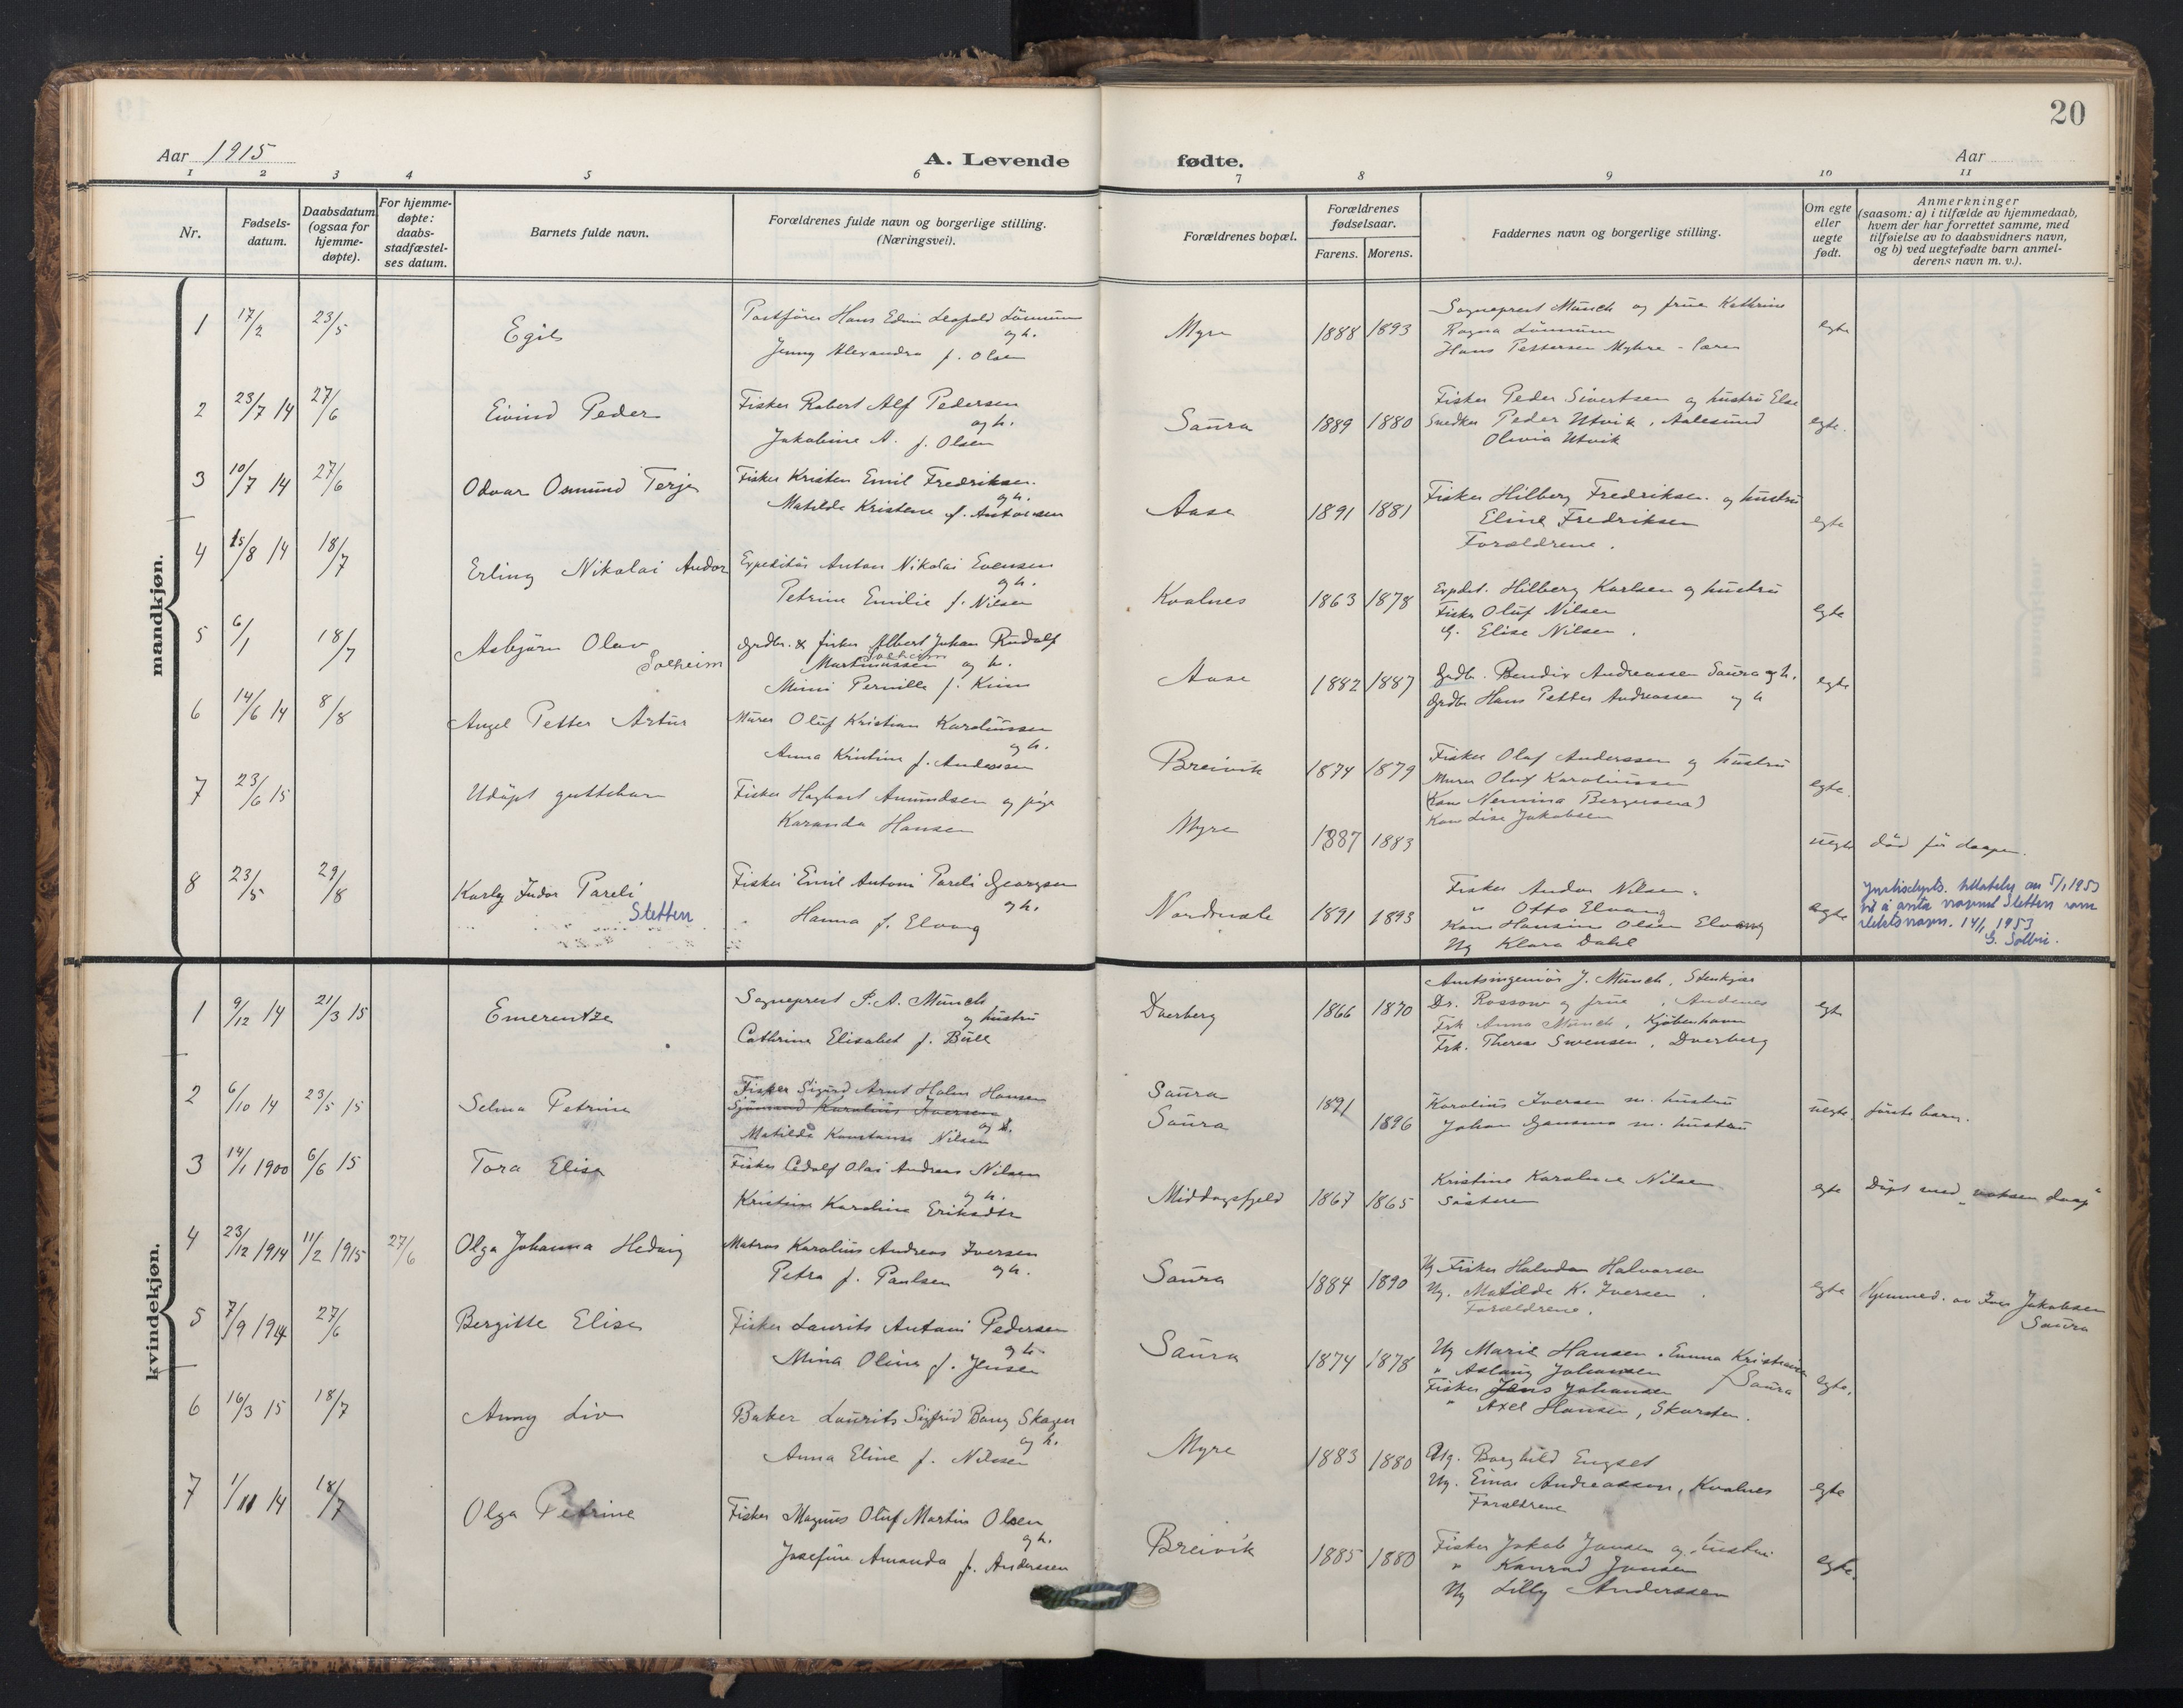 20
Aar 1915
A. Levende
fødte.
Aar
1 2 3 4 5 6 7 8 9 10 11
Nr.
Fødsels-
datum.
Daabsdatum
(ogsaa for
hjemme-
døpte).
For hjemme-
døpte:
daabs-
stadfæstel-
ses datum.
Barnets fulde navn.
Forældrenes fulde navn og borgerlige stilling.
(Næringsvei).
Forældrenes bopæl.
Forældrenes
fødselsaar.
Farens. Morens.
Faddernes navn og borgerlige stilling.
Om egte
eller
uegte
født.
Anmerkninger
(saasom: a) i tilfælde av hjemmedaab,
hvem der har forrettet samme, med
tilføielse av to daabsvidners navn,
og b) ved uegtefødte barn anmel-
derens navn m. v.).
mandkjøn.
1 17/2 23/5 Egil
Hans Edvin Leopold Lönnum
og h.
Jenny Alexandra f. Olsen
Myre 1888 1893
Sogneprest Münch og frue Kathrine
Ragna Lönnum
Hans Pettersen Myhre - lærer
egte
2 23/7 14 27/6 Eivind Peder
Fisker Robert Alf Pedersen
og h.
Jakobine A. f. Olsen
Saura 1889 1880
Fisker Peder Sivertsen og hustru Else
Snedker Peder Utvik, Aalesund
Olivia Utvik
egte.
3 10/7 14 27/6 Odvar Osmund Terje
Fisker Kristen Emil Fredriksen.
og h.
Matilde Kristene f. Antonsen
Aase 1891 1881
Fisker Hilberg Fredriksen. og hustru
Eline Fredriksen
Forældrene.
egte
4 15/8 14 18/7 Erling Nikolai Andor
Expeditör Anton Nikolai Evensen
og h.
Petrine Emilie f. Nilsen
Kvalnes 1863 1878
Expdt. Hilberg Karlsen og hustru
Fisker Oluf Nilsen
G. Elise Nilsen.
egte
5 6/1 18/7 Asbjörn Olav
Solheim
Grdbr. & fisker Albert Johan Rudolf
Solheim
Martinussen og h.
Mimi Pernille f. Kiim
Aase 1882 1887
Grdbr. Bendix Andreassen Saura og h.
Grdbr Hans Petter Andreassen og h
egte
6 14/6 14 8/8 Angel Petter Artur
Murer Oluf Kristian Karoliussen
og h.
Anna Kristine f. Anderssen
Breivik 1874 1879
Fisker Olaf Anderssen og hustru
Murer Oluf Karoliussen
(Kone Nennina Bergersen)
Kone Lise Jakobsen
egte.
7 23/6 15 Udöpt guttebarn
Fisker Hagbart Amundsen og pige
Karanda Hansen
Myre 1887 1883
uegte död för daapen.
8 23/5 29/8 Karly Indor Pareli
Stetten
Fisker Emil Antoni Pareli Georgsen
og h.
Hanna f. Elvang
Nordmæle 1891 1893
Fisker Andor Nilsen.
" Otto Elvang
Kone Hansine Olsen Elvang
Ug Klara Dahl
egte
Justisdepts. tillatelse av 5/1 1953
til å anta navnet Stetten som
slektsnavn. 14/1 1953
G. Solbu.
kvindekjøn.
1 9/12 14 21/3 15 Emerentze
Sogneprest P. A. Münch
og hustru
Cathrine Elisabet f. Büll
Dverberg 1866 1870
Amtsingeniör J. Münch, Stenkjær
Dr. Rossow og frue, Andenes
Frk Anna Münch, Kjöbenhavn
Frk. Therese Svensen, Dverberg
egte
2 6/10 14 23/5 15 Selma Petrine
Fisker Sigurd Arnt Holm Hansen
Sjömand Karolius Iversen
og h.
Matilde Konstanse Nilsen
Saura
Saura
1891
1896
Karolius Iversen m. hustru
Johan Gansmo m. hustru
uegte. förste barn.
3 14/1 1900 6/6 15 Tora Elise
Fisker Adolf Olai Andreas Nilsen
og h.
Kristine Karoline Eriksdtr
Middagsfjeld 1867 1865
Kristine Karoline Nilsen
Söstere
egte Döpt med „voksen daap"
4 23/12 1914 11/2 1915 27/6 Olga Johanna Hedvig
Matros Karolius Andreas Iversen
og h.
Petra f. Paulsen
Saura 1884 1890
Ug Fisker Halvdan Halvorsen
Ug. Matilde K. Iversen.
Forældrene.
egte Hjemmed. av Iver Jakobsen
Saura
5 7/9 1914 27/6 Bergitte Elise
Fisker Laurits Antoni Pedersen
og h.
Mina Olina f. Jensen
Saura 1874 1878
Ug Marie Hansen. Emma Kristiansen
" Aslaug Johansen
Fisker Jens Johansen / Saura
" Axel Hansen, Skarsten.
egte.
6 16/3 15 18/7 Anny Liv
Baker Laurits Sigfrid Bang Skagen
og h.
Anna Eline f. Nilssen
Myre 1883 1880
Ug. Borghild Engset
Ug. Einar Andreassen, Kvalnes
Forældrene
egte
7 1/11 14 18/7 Olga Petrine
Fisker Magnus Oluf Martin Olsen
og h.
Josefine Amanda f. Anderssen
Breivik 1885 1880
Fisker Jakob Jansen og hustru
" Konrad Jansen
Ug Lilly Anderssen
egte.